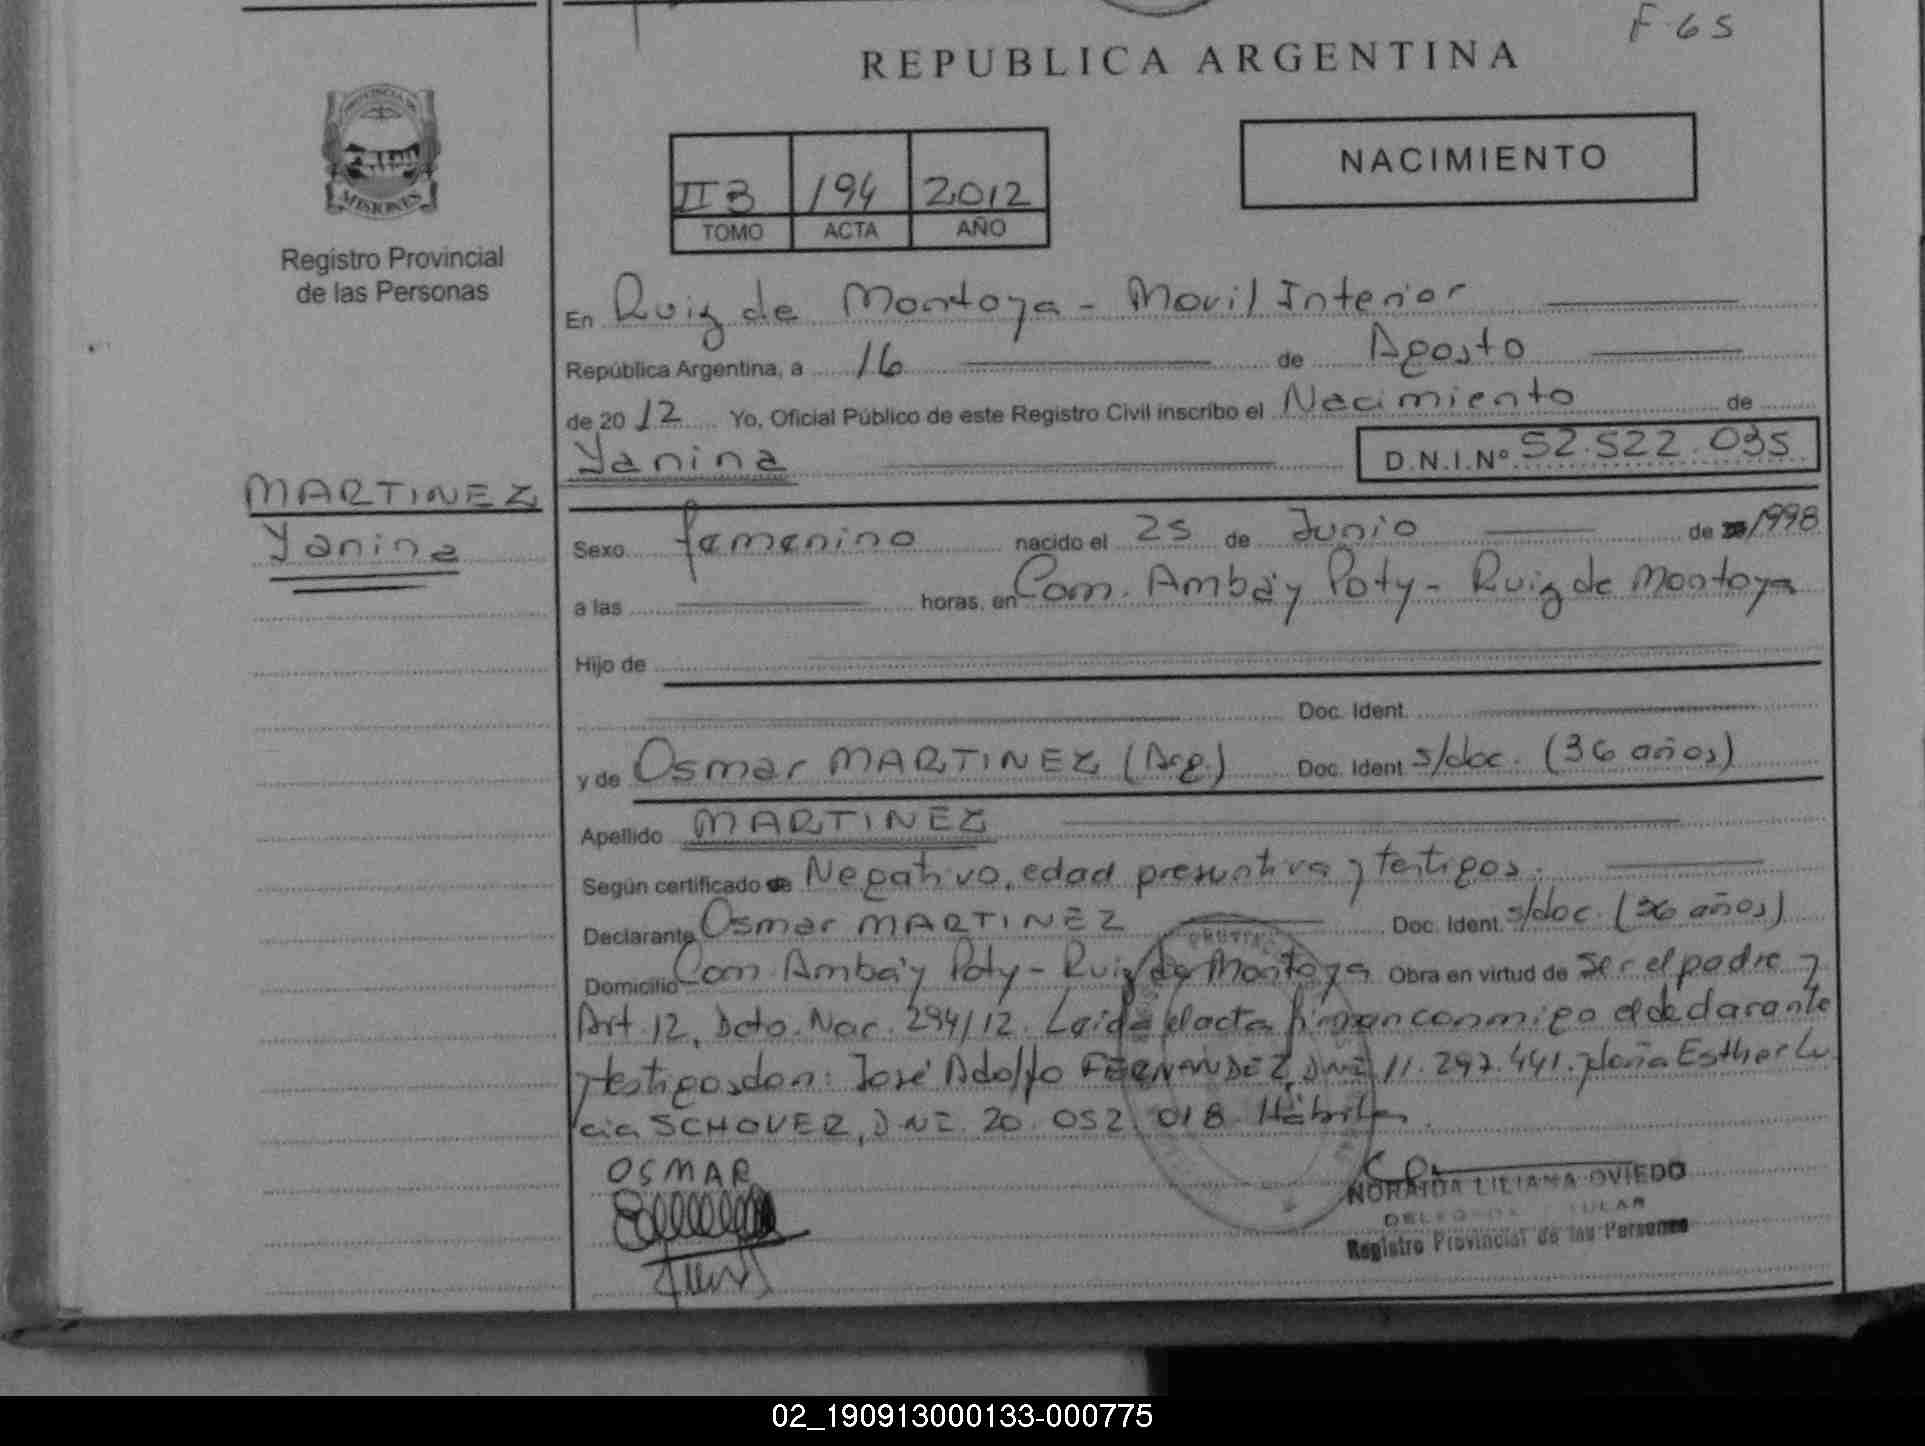 F 65
REPUBLICA ARGENTINA
PROVINCIA DE
MISIONES
Registro Provincial
de las Personas
NACIMIENTO
II B 194 2012
TOMO ACTA AÑO
En Ruiz de Montoya - Movil Interior
República Argentina, a 16 de Agosto
de 20 12 Yo, Oficial Público de este Registro Civil inscribo el Nacimiento de
Yanina D.N.I.Nº 52.522.035
MARTINEZ
Yanina
Sexo femenino nacido el 25 de Junio de 1998
a las horas, en Com. Ambay Poty - Ruiz de Montoya
Hijo de
Doc. Ident.
y de Osmar MARTINEZ (Arg.) Doc. Ident s/doc. (36 años)
Apellido MARTINEZ
Según certificado de Negativo, edad presuntiva y testigos.
Declarante Osmar MARTINEZ Doc. Ident. s/doc. (36 años)
Domicilio Com. Ambay Poty - Ruiz de Montoya Obra en virtud de ser el padre y
Art. 12, Dcto. Nac. 294/12. Leida el acta firman conmigo el declarante
y testigos don: José Adolfo FERNANDEZ, DNI 11.297.441. y doña Esther Lu
cia SCHOVER, DNI. 20.052.018. Hábiles.
OSMAR
NORAIDA LILIANA OVIEDO
Registro Provincial de las Personas
02_190913000133-000775